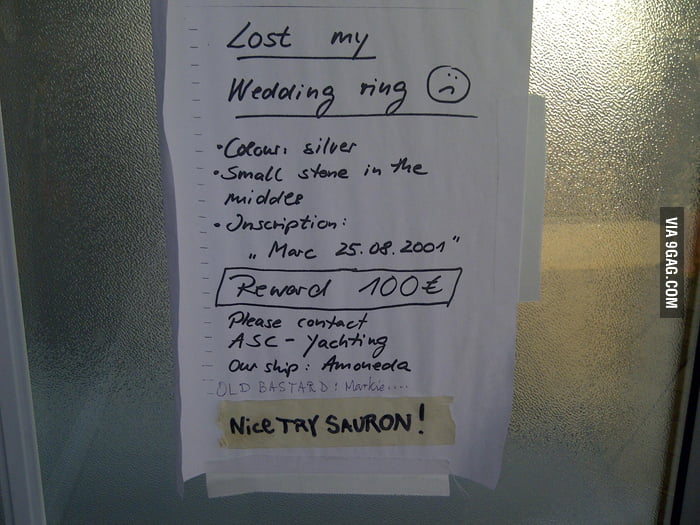 Lost my
Wedding ring
• Colour: silver
• Small stone in the
middle
• Inscription:
„ Marc 25.08.2001 "
Reward 100€
Please contact
ASC - Yachting
Our ship: Amoneda
OLD BASTARD: Markie....
Nice TRY SAURON!
VIA 9GAG.COM